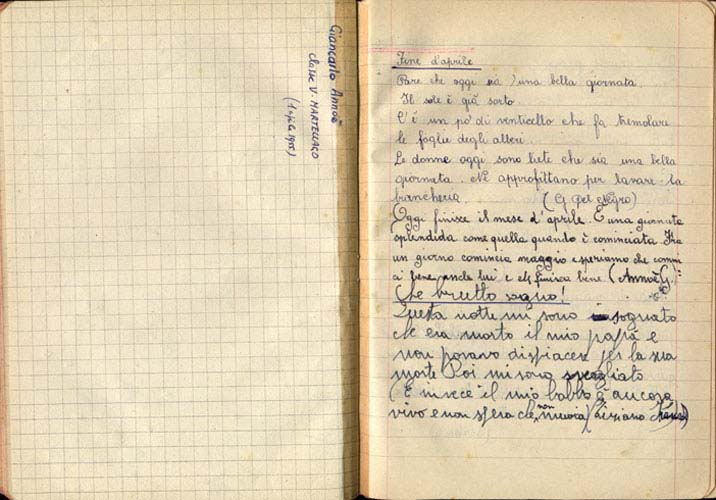 Giancarlo Annoè
classe V. MARTELLAGO
(1955)
Fine d'aprile
Pare che oggi sia una bella giornata.
Il sole è già sorto.
C'è un po' di venticello che fa tremolare
le foglie degli alberi.
Le donne oggi sono liete che sia una bella
giornata. Ne approfittano per lavare la
biancheria. (G. Del Negro)
Oggi finisce il mese d'aprile. È una giornata
splendida come quella quando è cominciata. Fra
un giorno comincia maggio e speriamo che comin
ci bene anche lui e che finisca bene. (Annoè G.)
Che brutto sogno!
Questa notte mi sono sognato
che era morto il mio papà e
non potavo dispiacere per la sua
morte Poi mi sono svegliato
(E invece il mio babbo è ancora
vivo e non spera che non muoia Tiziano